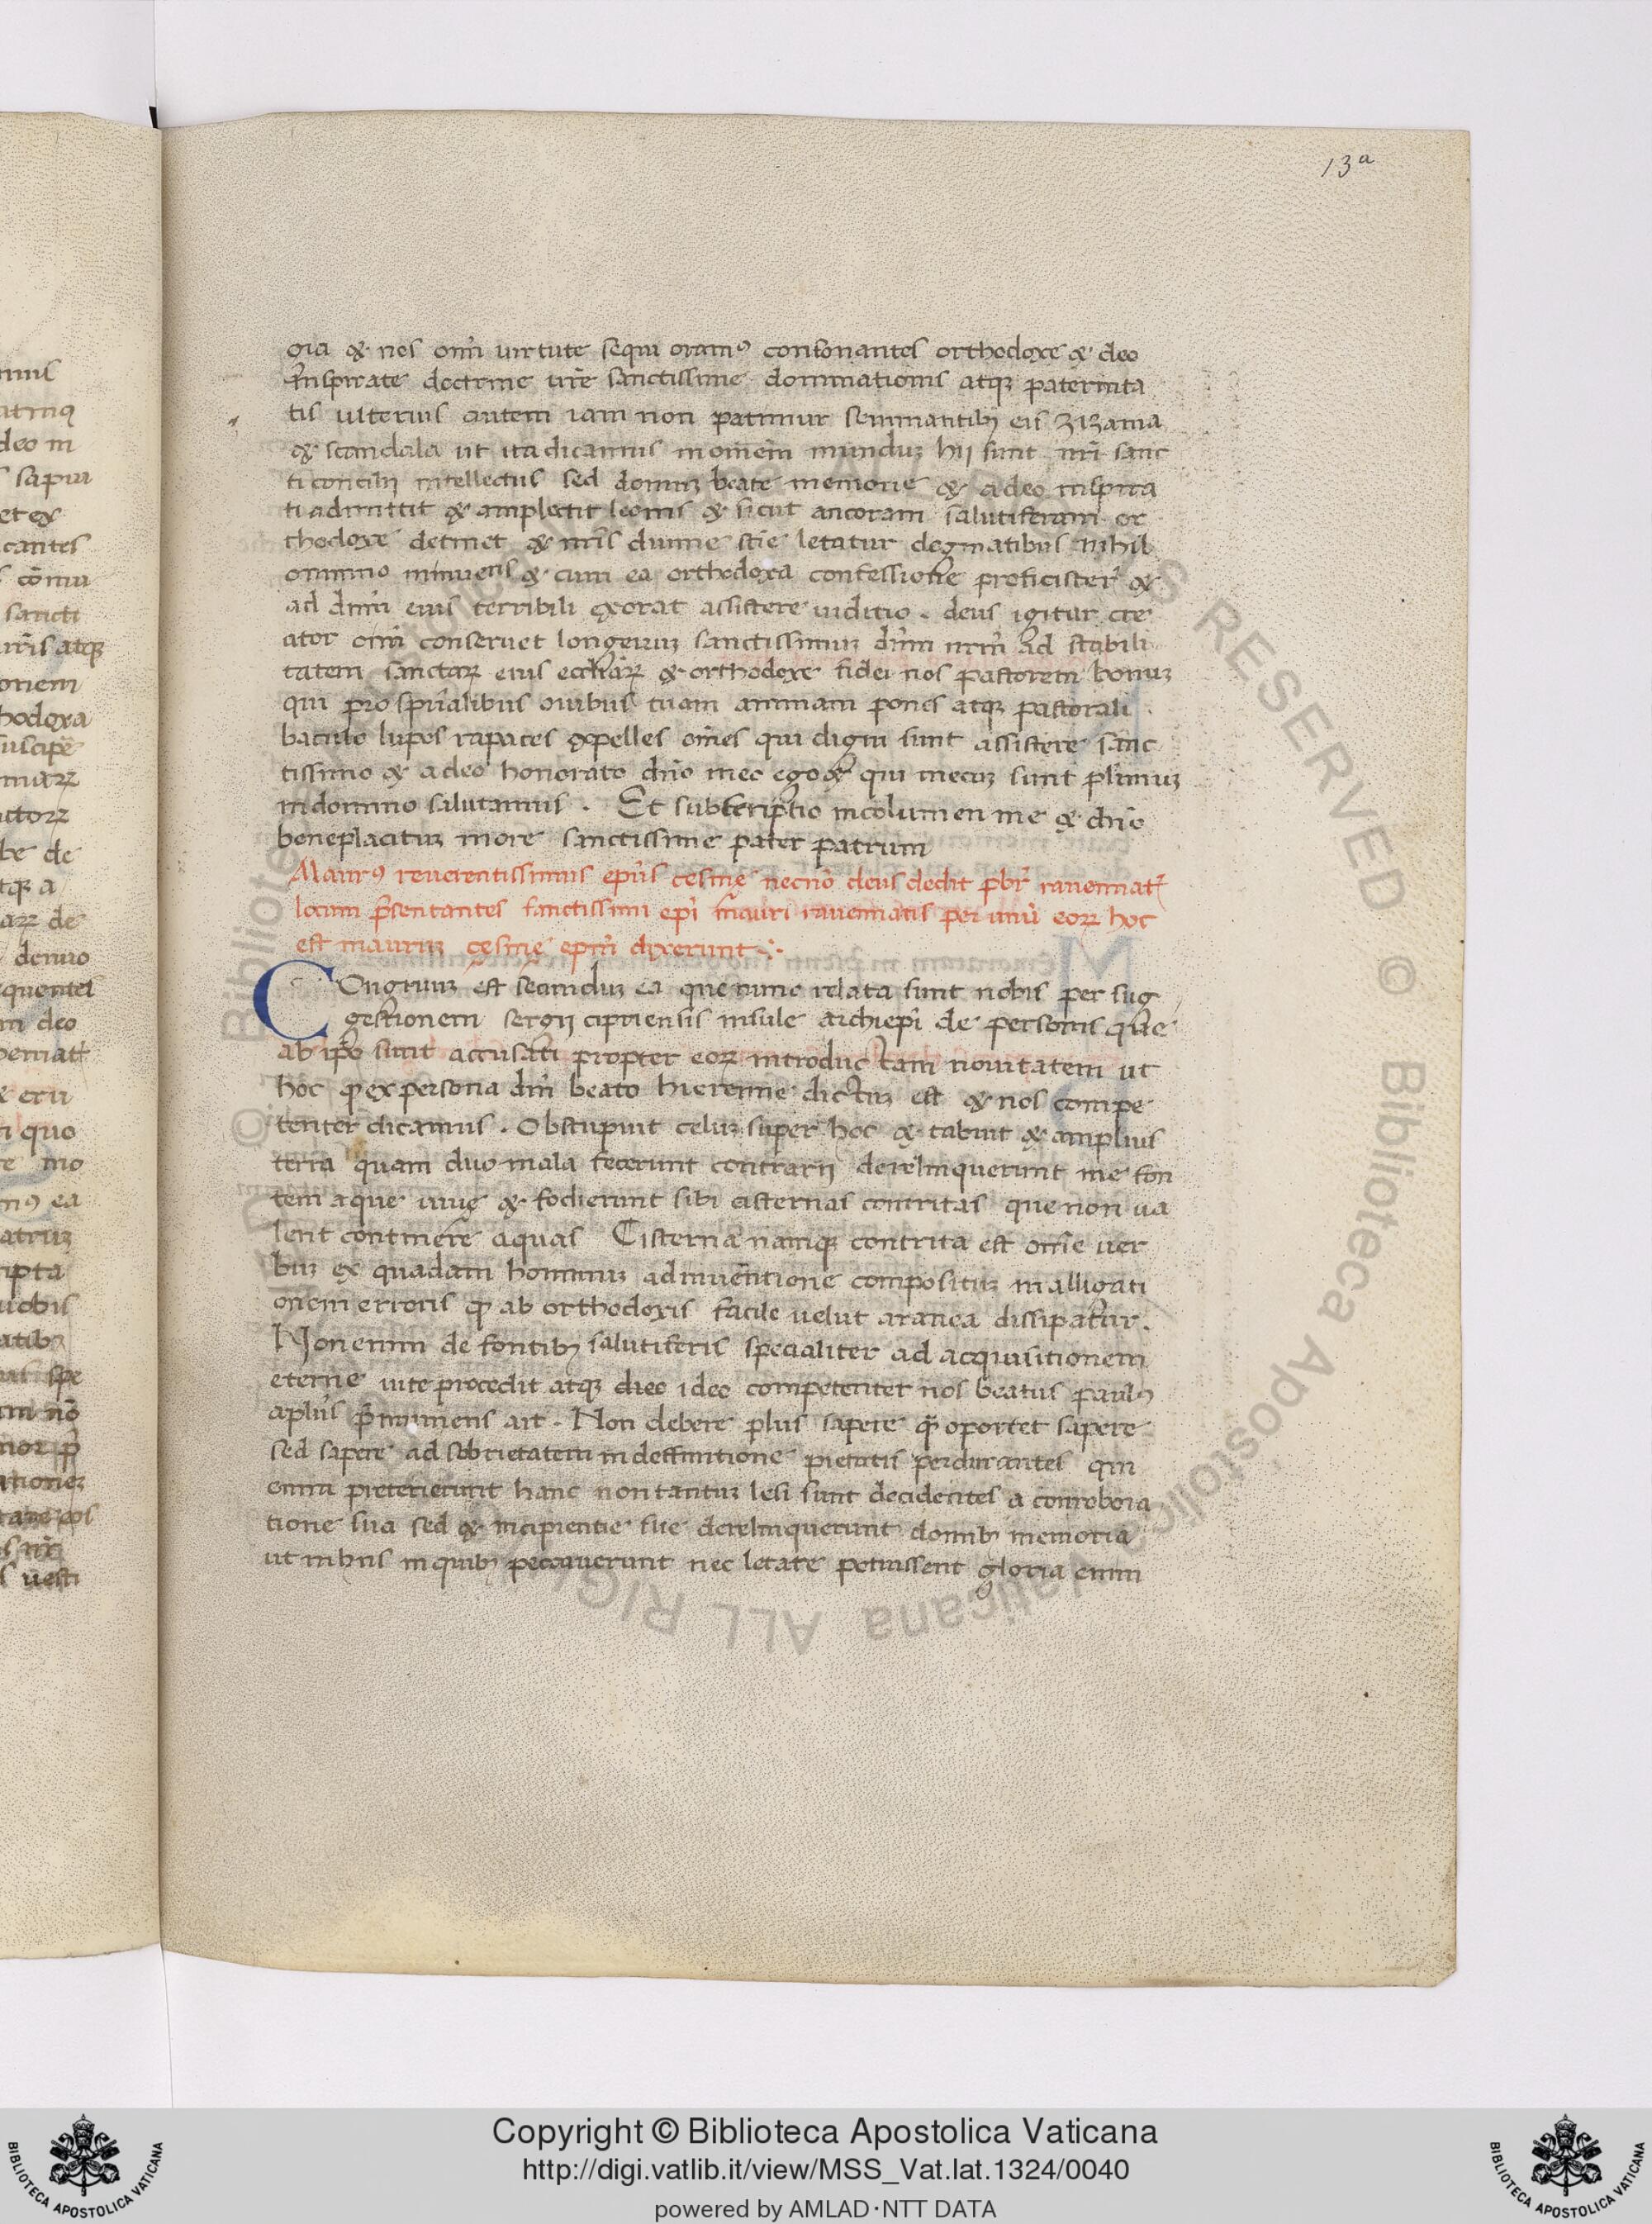 13ª
gia & nos om̄i virtute sequi oramꝰ consonantes orthodoxe & deo
inspirate doctrine vr̄e sanctissime dominationis atqꝫ paternita
tis ulterius autem iam non patimur seminantibꝫ eis zizania
& scandala ut ita dicamus in om̄em munduꝫ hij sunt nr̄i sanc
ti concilij intellectus sed donuꝫ beate memorie & a deo inspira
ti admittit & amplectit leonis & sicut ancoram salutiferam or
thodoxe detinet & nr̄is divine sc̄ie letatur dogmatibus nihil
omnino minuens & cum ea orthodoxa confessione proficisceř &
ad dn̄m eius terribili exorat assistere iuditio. deus igitur cre
ator om̄i conservet longevuꝫ sanctissimuꝫ dn̄m nr̄m ad stabili
tatem sanctaꝝ eius eccl̄iaꝝ & orthodoxe fidei nos pastorem bonuꝫ
qui pro spūalibus ovibus tuam animam ponis atqꝫ pastorali
baculo lupos rapaces expelles om̄es qui digni sunt assistere sanc
tissimo & a deo honorato dn̄o meo ego & qui mecuꝫ sunt pl̄imuꝫ
in domino salutamus. Et subscriptio incolumen me & dn̄o
beneplacituꝫ more sanctissime pater patrum
Maurꝰ reverentissimus ep̄us cesine necnō deusdedit p̄br̄ ravennat̄
locum p̄sentantes sanctissimi ep̄i mauri ravennatis per unū eoꝝ hoc
est mauruꝫ cesine ep̄m dixerunt
COngruuꝫ est secunduꝫ ea que nunc relata sunt nobis per sug
gestionem sergij cipriensis insule archiep̄i de personis que
ab ip̄o sunt accusati propter eoꝝ introductam novitatem ut
hoc qđ ex persona dn̄i beato hieremie dictuꝫ est & nos compe
tenter dicamus. Obstupuit celuꝫ super hoc & tabuit & amplius
terra quam duo mala fecerunt contrarij derelinquerunt me fon
tem aque vive & fodierunt sibi cisternas contritas que non va
lent continere aquas Cisterna namqꝫ contrita est om̄e ver
buꝫ ex quadam hominuꝫ adinventione compositu ꝫ in alligati
onem erroris qđ ab orthodoxis facile velut aranea dissipatur.
Non enim de fontibꝫ salutiferis specialiter ad acquisitionem
eterne vite procedit atqꝫ dico ideo competenter nos beatus paulꝰ
apl̄us p̄muniens ait. Non debere plus sapere q̄ oportet sapere
sed sapere ad sobrietatem in deffinitione pietatis perdurantes qui
enim preterierunt hanc non tantuꝫ lesi sunt decidentes a corrobora
tione sua sed & incipientie sue derelinquerunt domibꝫ memoria
ut in hiis in quibꝫ peccaverunt nec letare potuissent gloria enim
Copyright © Biblioteca Apostolica Vaticana
http://digi.vatlib.it/view/MSS_Vat.lat.1324/0040
powered by AMLAD·NTT DATA